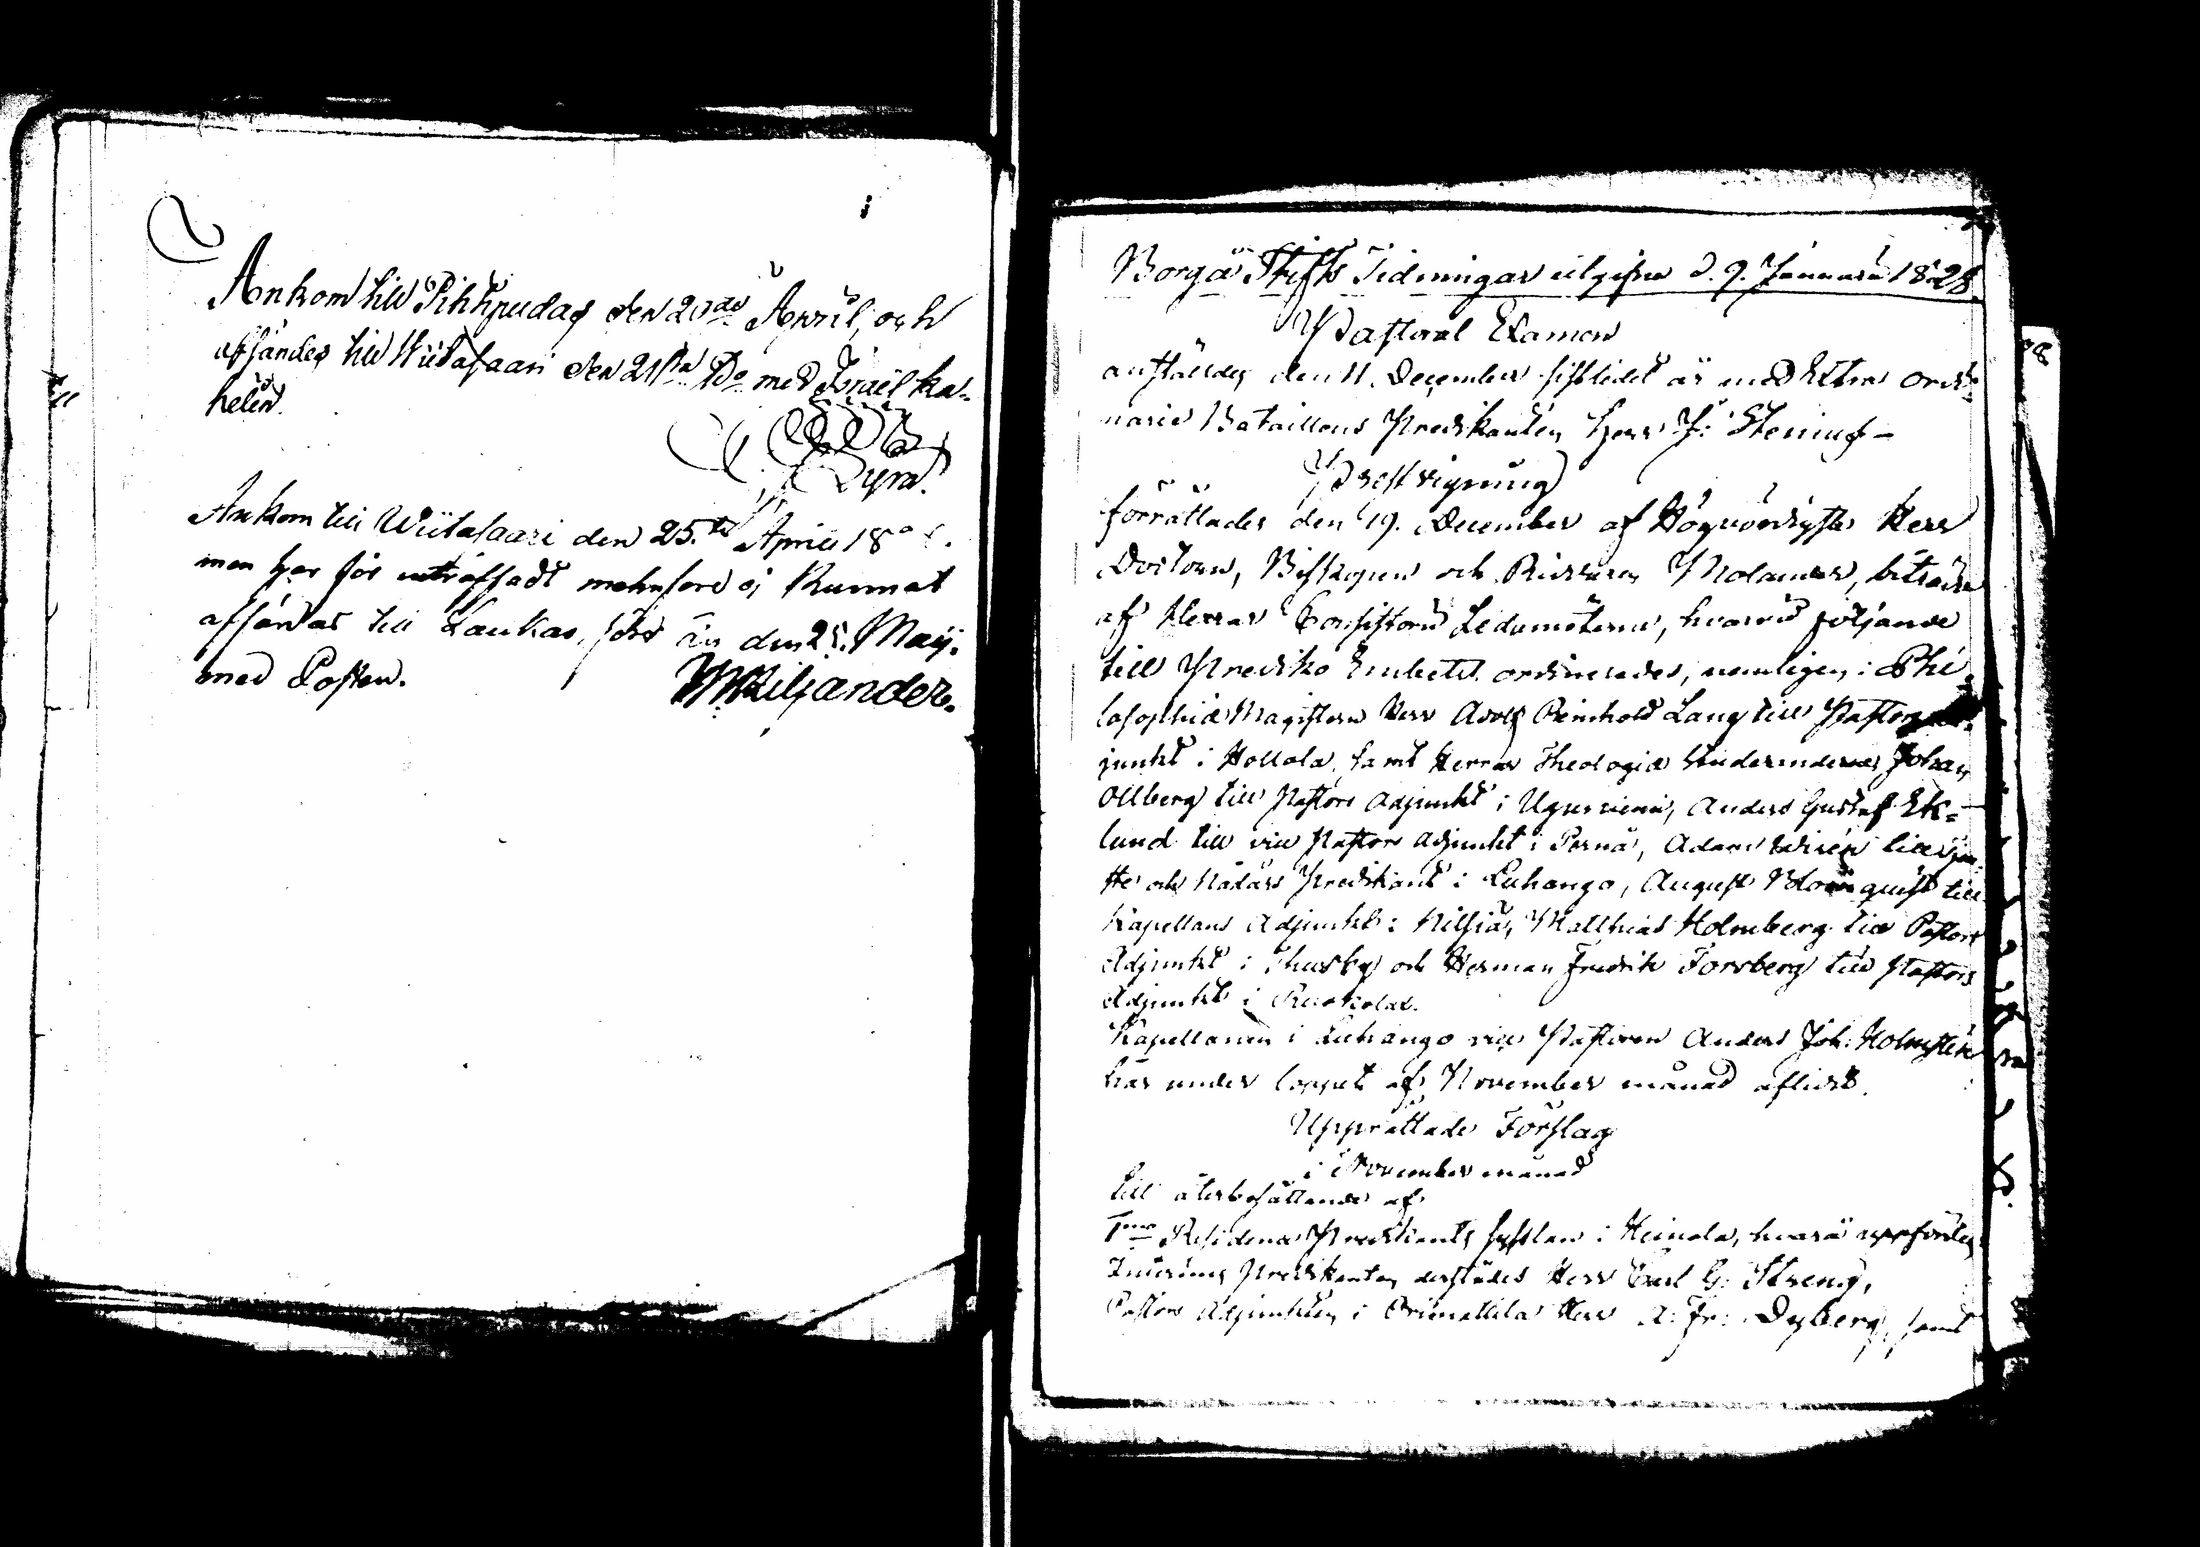 Ankom till Pihtipudas den 20de April, och
afsändes till Wiitasaari den 21sta Do med Israel Ka-
helin.
Ankom till Wiitasaari den 25.te April 18
men har för inträffadt menföre ej kunnat
afsändas till Laukas, förr än den 25. Maij.
med Posten.
WKiljander.
Borgå Stifts Tidningar utgifne d. 9. Januarii 1828.
Pastoral Examen
anställdes den 11. December sistledet år med Extra ordi-
narie Bataillons Predikanten Herr J: Stenius -
Prestvigning
förrättades den 19. December af Högvördigste Herr
Doctorn, Biskopen och Riddaren Molander, biträdd
af Herrar Consistorii Ledamöterne, hvarvid följande
till Prediko Embetet ordinerades, nemligen: Phi-
losophiæ Magistern Herr Adolf Reinhold Lang till Pastors Ad-
junkt i Hollola, samt Herrar Theologiæ Studerandena Johan
Ollberg till Pastors Adjunkt i Uguniemi, Anders Gustaf Ek-
lund till vice Pastors Adjunkt i Pernå, Adam Wirén till
och Nådårs Predikant i Luhango, August Blomquist till
Kapellans Adjunkt i Nilsiä, Matthias Holmberg till Pastors
Adjunkt i Thusby och Herman Fredrik Forsberg till Pastors
Adjunkt i Ruokolax.
Kapellanen i Luhango vice Pastoren Anders Joh: Holmstén
har under loppet af November månad aflidit.
Upprättade Förslag
i November månad
till återbesättande af
1mo Residence Predikants sysslan i Heinola, hvarå uppfördes
Predikanten derstädes Herr Carl G: Streng,
Pastors Adjunkten i Orimattila Herr A: Fr: Dyberg, samt